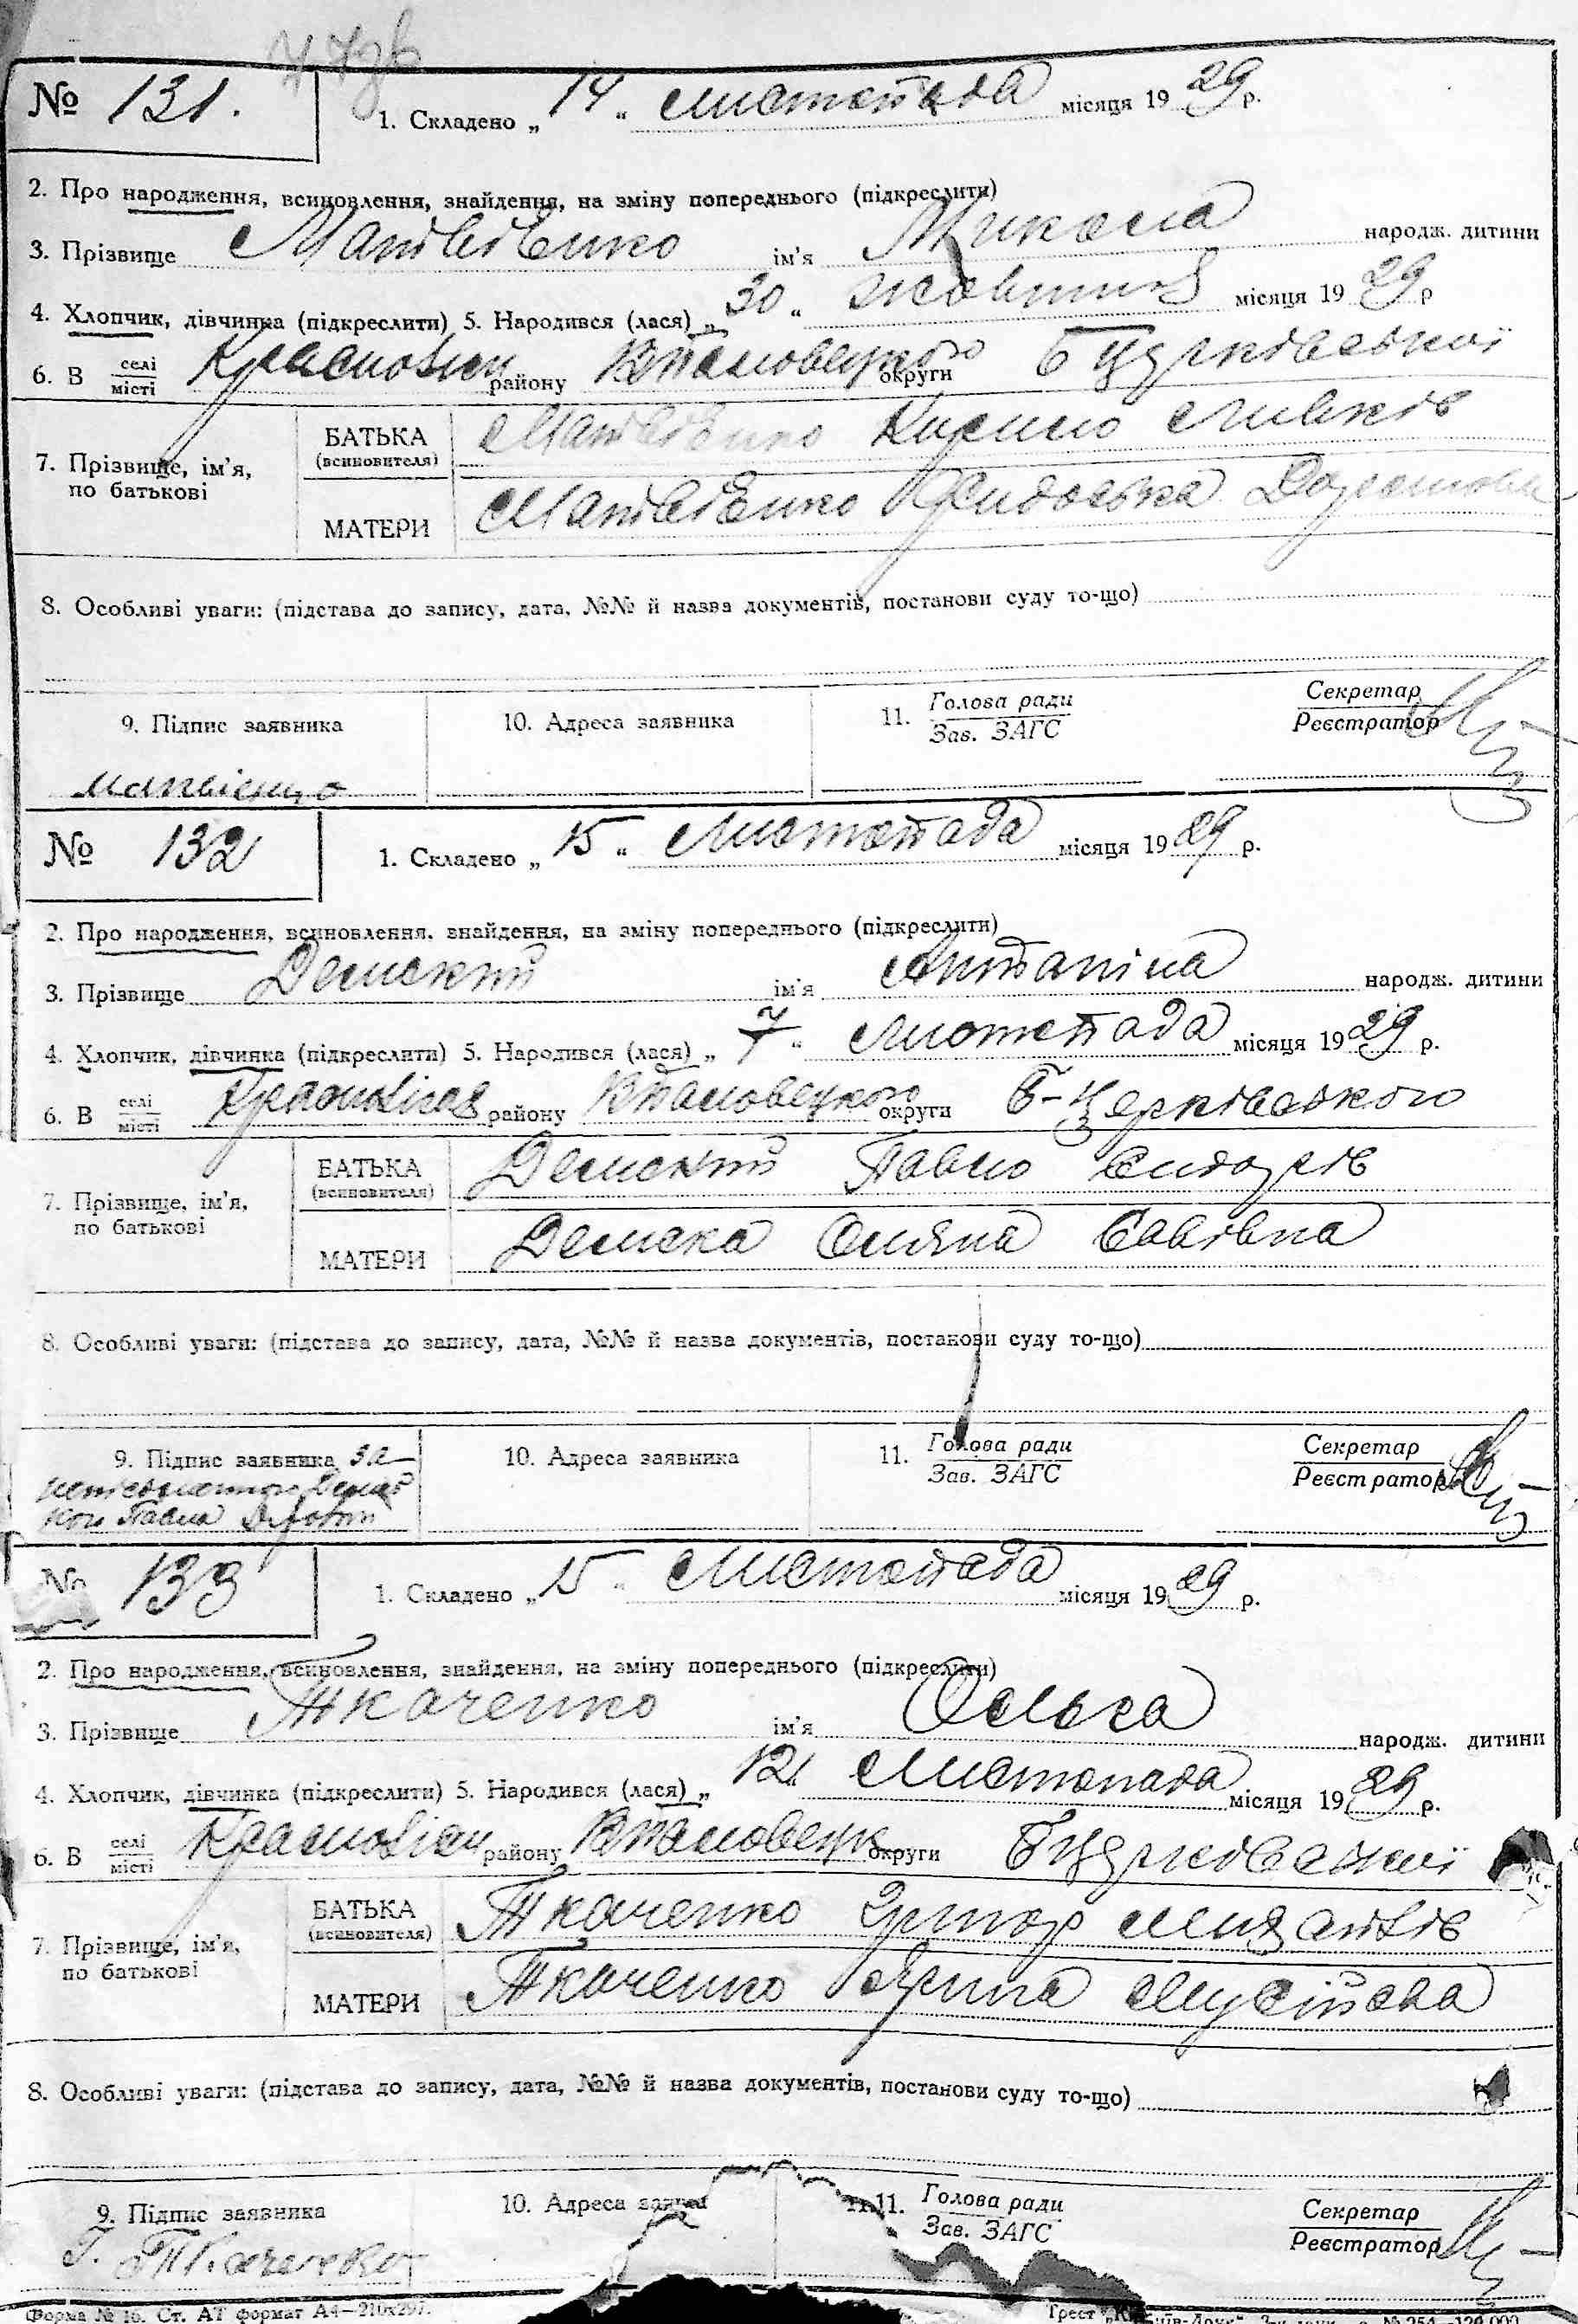 № 131.
1. Складено „ 14 “ листопада місяця 19 29 р.
2. Про народження, всиновлення, знайдення, на зміну попереднього (підкреслити)
3. Прізвище Матвієнко ім'я Микола народж. дитини
4. Хлопчик, дівчинка (підкреслити) 5. Народився (лася) „ 30 “ жовтня місяця 19 29 р
6. В селі/місті району округи Бцерківської
7. Прізвище, ім'я, по батькові
БАТЬКА (всиновителя) Матвієнко Кирило
МАТЕРИ Матвієнко
8. Особливі уваги: (підстава до запису, дата, №№ й назва документів, постанови суду то-що)
9. Підпис заявника 10. Адреса заявника 11. Голова ради/Зав. ЗАГС Секретар/Реєстратор
Матвієнко
№ 132
1. Складено „ 15 “ Листопада місяця 19 29 р.
2. Про народження, всиновлення, знайдення, на зміну попереднього (підкреслити)
3. Прізвище Демский ім'я Антаніна народж. дитини
4. Хлопчик, дівчинка (підкреслити) 5. Народився (лася) „ 7 “ листопада місяця 19 29 р.
6. В селі/місті району округи Б-Церківського
7. Прізвище, ім'я, по батькові
БАТЬКА (всиновителя) Демский Павло Сидорів
МАТЕРИ Демска Савівна
8. Особливі уваги: (підстава до запису, дата, №№ й назва документів, постанови суду то-що)
9. Підпис заявника за 10. Адреса заявника 11. Голова ради/Зав. ЗАГС Секретар/Реєстратор
Павла
№ 133
1. Складено „ 15 “ Листопада місяця 19 29 р.
2. Про народження, всиновлення, знайдення, на зміну попереднього (підкреслити)
3. Прізвище Ткаченко ім'я Ольга народж. дитини
4. Хлопчик, дівчинка (підкреслити) 5. Народився (лася) „ 12 “ Листопада місяця 19 29 р.
6. В селі/місті району округи Бцерківської
7. Прізвище, ім'я, по батькові
БАТЬКА (всиновителя) Ткаченко
МАТЕРИ Ткаченко Ярина
8. Особливі уваги: (підстава до запису, дата, №№ й назва документів, постанови суду то-що)
9. Підпис заявника 10. Адреса 11. Голова ради/Зав. ЗАГС Секретар/Реєстратор
Г. Ткаченко
Форма № 16. Ст. АТ формат А4—210х297. Трест